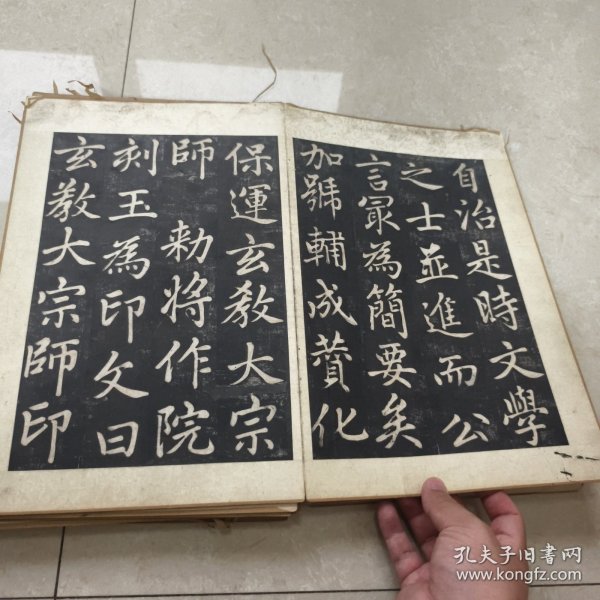 自治是時文學
之士並進而公
言冣為簡要矣
加號輔成贊化
保運玄教大宗
師 勅將作院
刻玉為印文曰
玄教大宗師印
孔夫子旧书网
www.kongfz.com